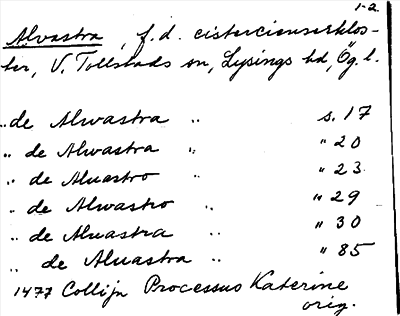 1-2.
Alvastra, f.d. cistercienserklos-
ter, V. Tollstads sn, Lysings hd, Ög. l.
"de Alwastra " s. 17
" de Alwastra " " 20
" de Aluastro " " 23
" de Alwastro " " 29
" de Aluastra " " 30
" de Aluastra " " 85
1477 Collijn Processus Katerine
orig.